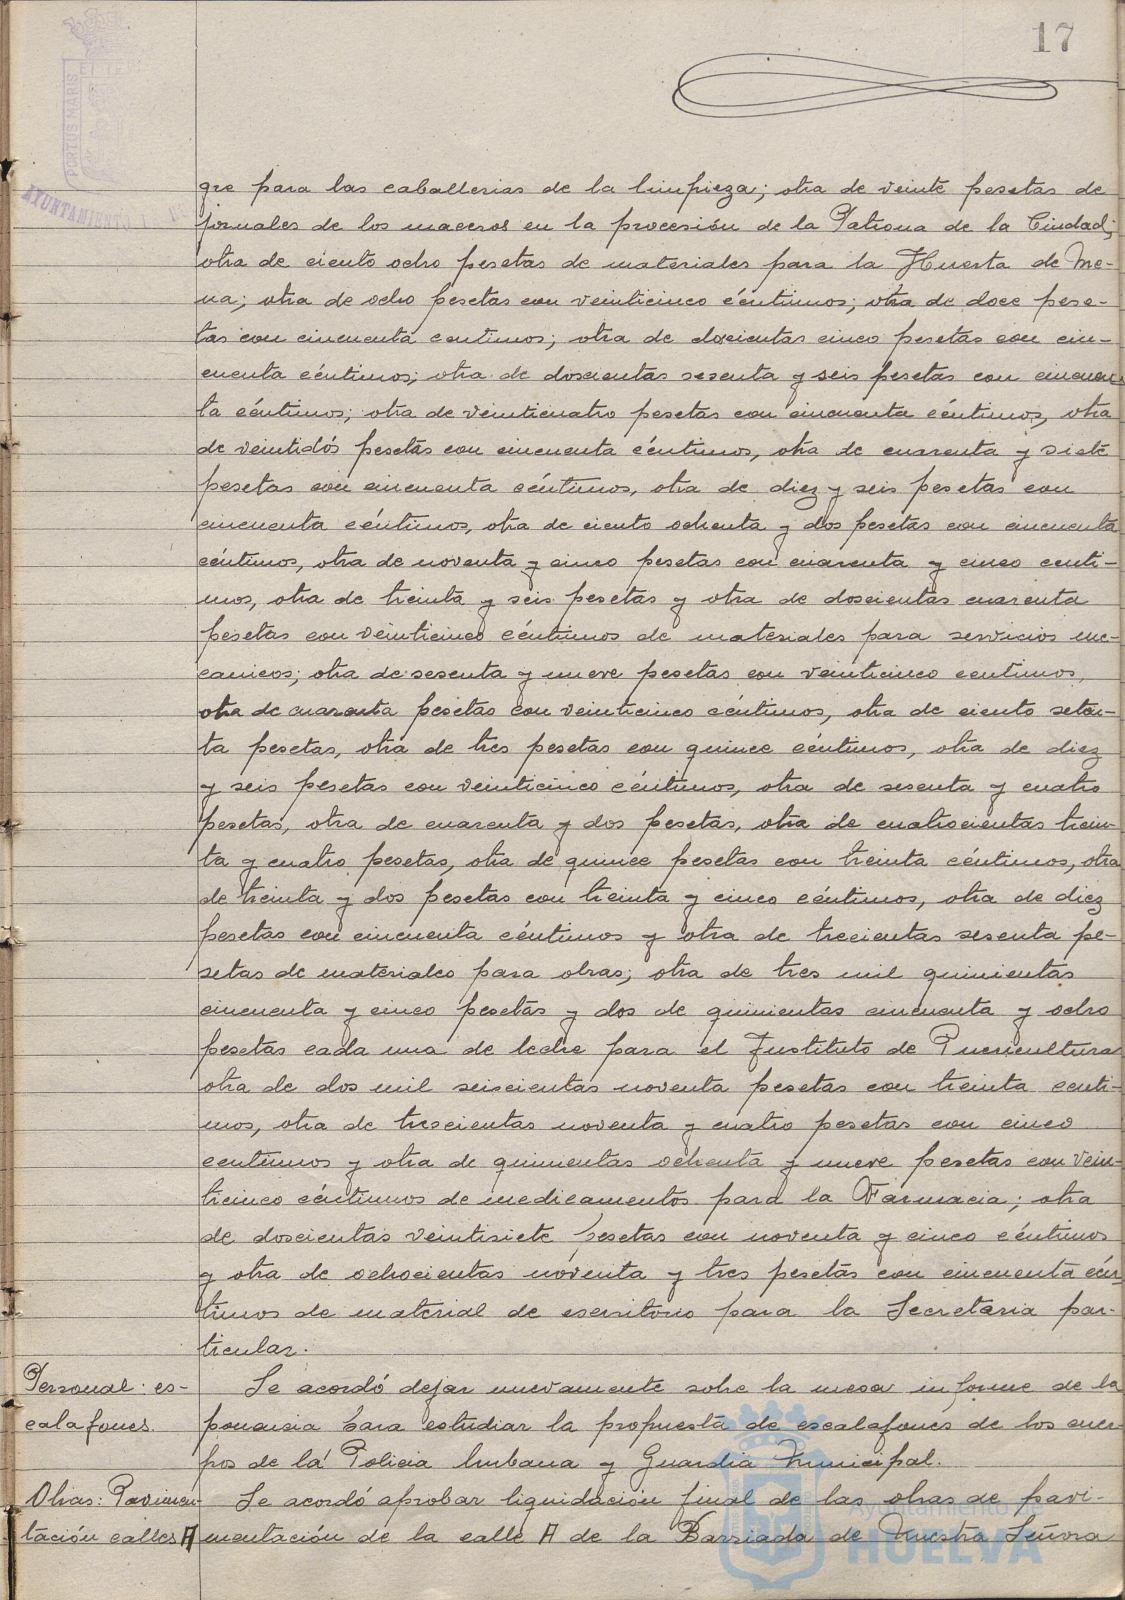 17
PORTUS MARIS
AYUNTAMIENTO DE
gre para las caballerias de la limpieza; otra de veinte pesetas de
jornales de los maceros en la procesión de la Patrona de la Ciudad;
otra de ciento ocho pesetas de materiales para la Huerta de Me-
na; otra de ocho pesetas con veinticinco céntimos; otra de doce pese-
tas con cincuenta centimos; otra de doscientas cinco pesetas con cin-
cuenta céntimos; otra de doscientas sesenta y seis pesetas con cincuen
ta céntimos; otra de veinticuatro pesetas con cincuenta céntimos, otra
de veintidós pesetas con cincuenta céntimos, otra de cuarenta y siete
pesetas con cincuenta céntimos, otra de diez y seis pesetas con
cincuenta céntimos, otra de ciento ochenta y dos pesetas con cincuenta
céntimos, otra de noventa y cinco pesetas con cuarenta y cinco centi-
mos, otra de treinta y seis pesetas y otra de doscientas cuarenta
pesetas con veinticinco céntimos de materiales para servicios me-
canicos; otra de sesenta y nueve pesetas con veinticinco centimos,
otra de cuarenta pesetas con veinticinco céntimos, otra de ciento seten-
ta pesetas, otra de tres pesetas con quince céntimos, otra de diez
y seis pesetas con veinticinco céntimos, otra de sesenta y cuatro
pesetas, otra de cuarenta y dos pesetas, otra de cuatrocientas trein-
ta y cuatro pesetas, otra de quince pesetas con treinta céntimos, otra
de treinta y dos pesetas con treinta y cinco céntimos, otra de diez
pesetas con cincuenta céntimos y otra de trecientas sesenta pe-
setas de materiales para obras; otra de tres mil quinientas
cincuenta y cinco pesetas y dos de quinientas cincuenta y ocho
pesetas cada una de leche para el Instituto de Puericultura
otra de dos mil seiscientas noventa pesetas con treinta centi-
mos, otra de trescientas noventa y cuatro pesetas con cinco
centimos y otra de quinientas ochenta y nueve pesetas con vein-
ticinco céntimos de medicamentos para la Farmacia; otra
de doscientas veintisiete pesetas con noventa y cinco céntimos
y otra de ochocientas noventa y tres pesetas con cincuenta cén-
timos de material de escritorio para la Secretaria par-
ticular.
Personal: es-
calafones.
Se acordó dejar nuevamente sobre la mesa informe de la
ponencia para estudiar la propuesta de escalafones de los cuer-
pos de la Policia Urbana y Guardia Municipal.
Obras: Pavimen-
tación calles A
Se acordó aprobar liquidación final de las obras de pavi-
mentación de la calle A de la Barriada de Nuestra Señora
Ayuntamiento de
HUELVA